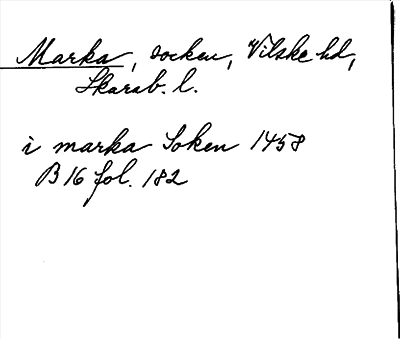 Marka, socken, Vilske hd,
Skarab. l.
i marka Soken 1458
B 16 fol. 182